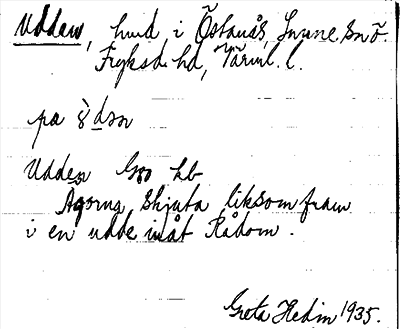 Udden, hmd i Östanås, Sunne sn ö.
Fryksd. hd, Värml. l.
på
Udden hb
Ägorna skjuta liksom fram
i en udde inåt Rådom.
Greta Hedin 1935.